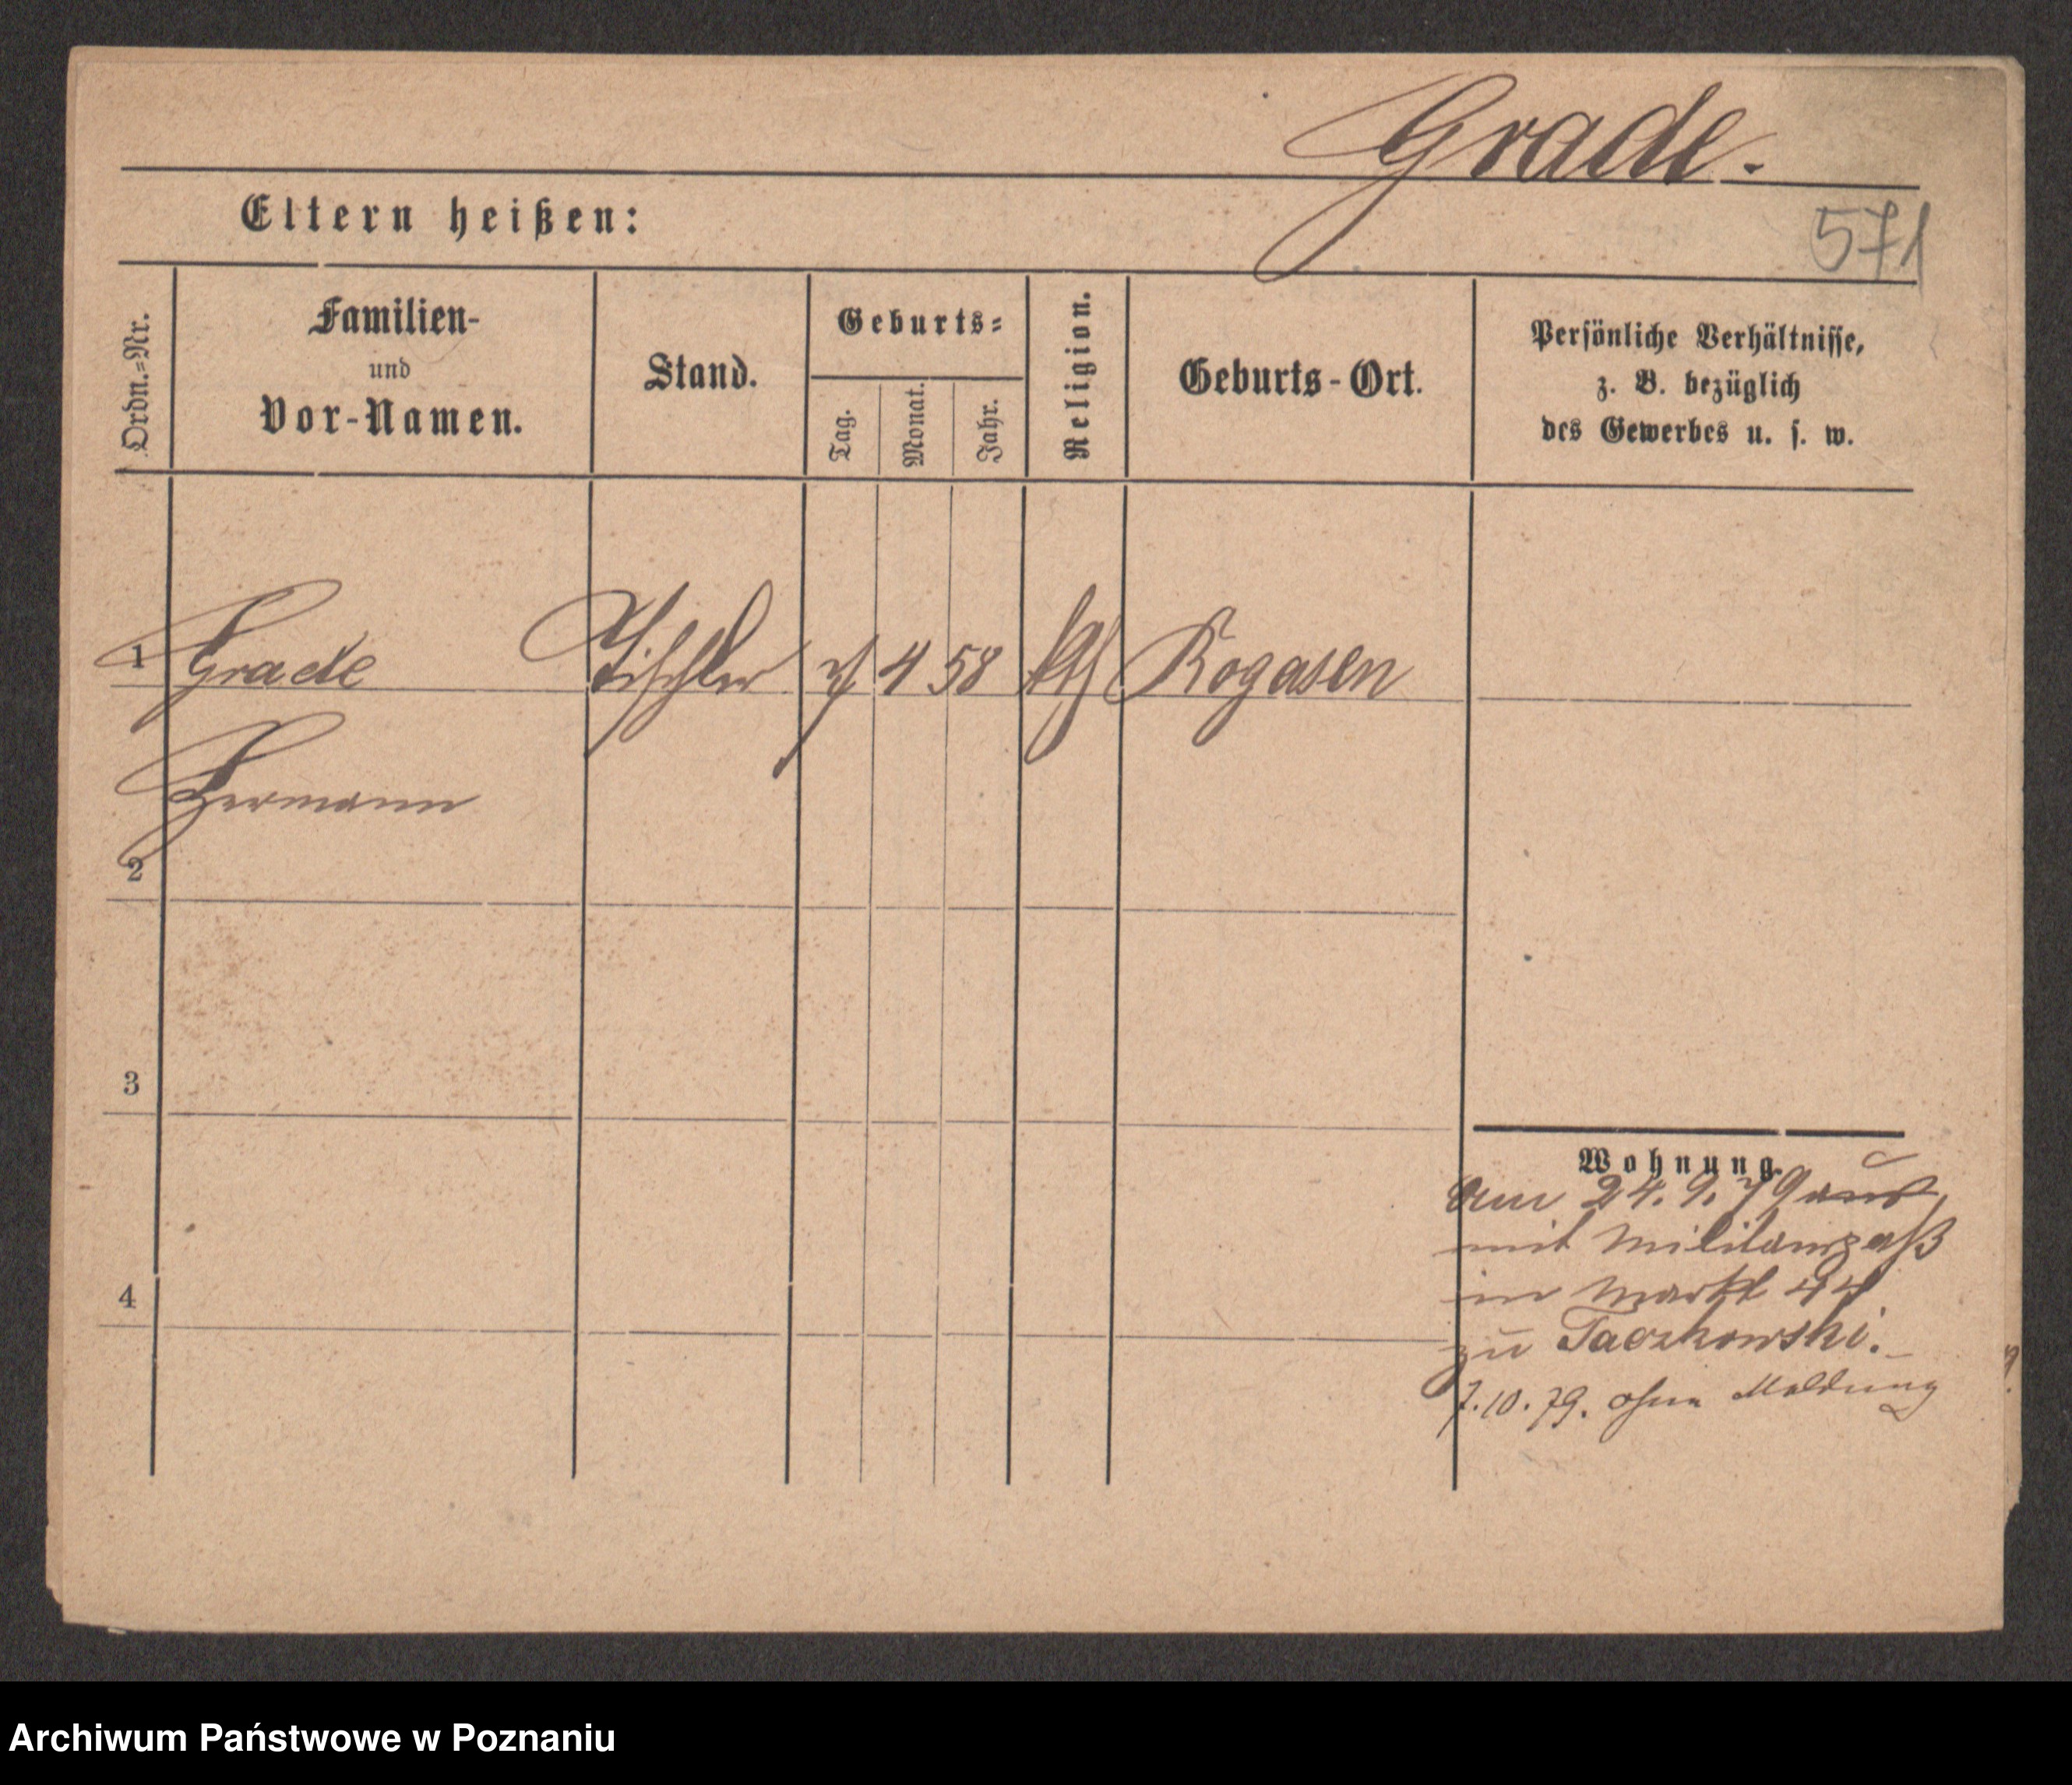 Grade.
Eltern heißen:
571
Ordn.=Nr.
Familien-
und
Vor-Namen.
Stand.
Geburts=
Tag.
Monat.
Jahr.
Religion.
Geburts-Ort.
Persönliche Verhältnisse,
z. B. bezüglich
des Gewerbes u. s. w.
1 Grade Tischler 4 58 Rogasen
Hermann
2
3
4
Wohnung
am 24. 9. 79 aus
mit Militairpaß
in Markt 44
zu Taczkowski.
7. 10. 79. ohne Meldung
Archiwum Państwowe w Poznaniu